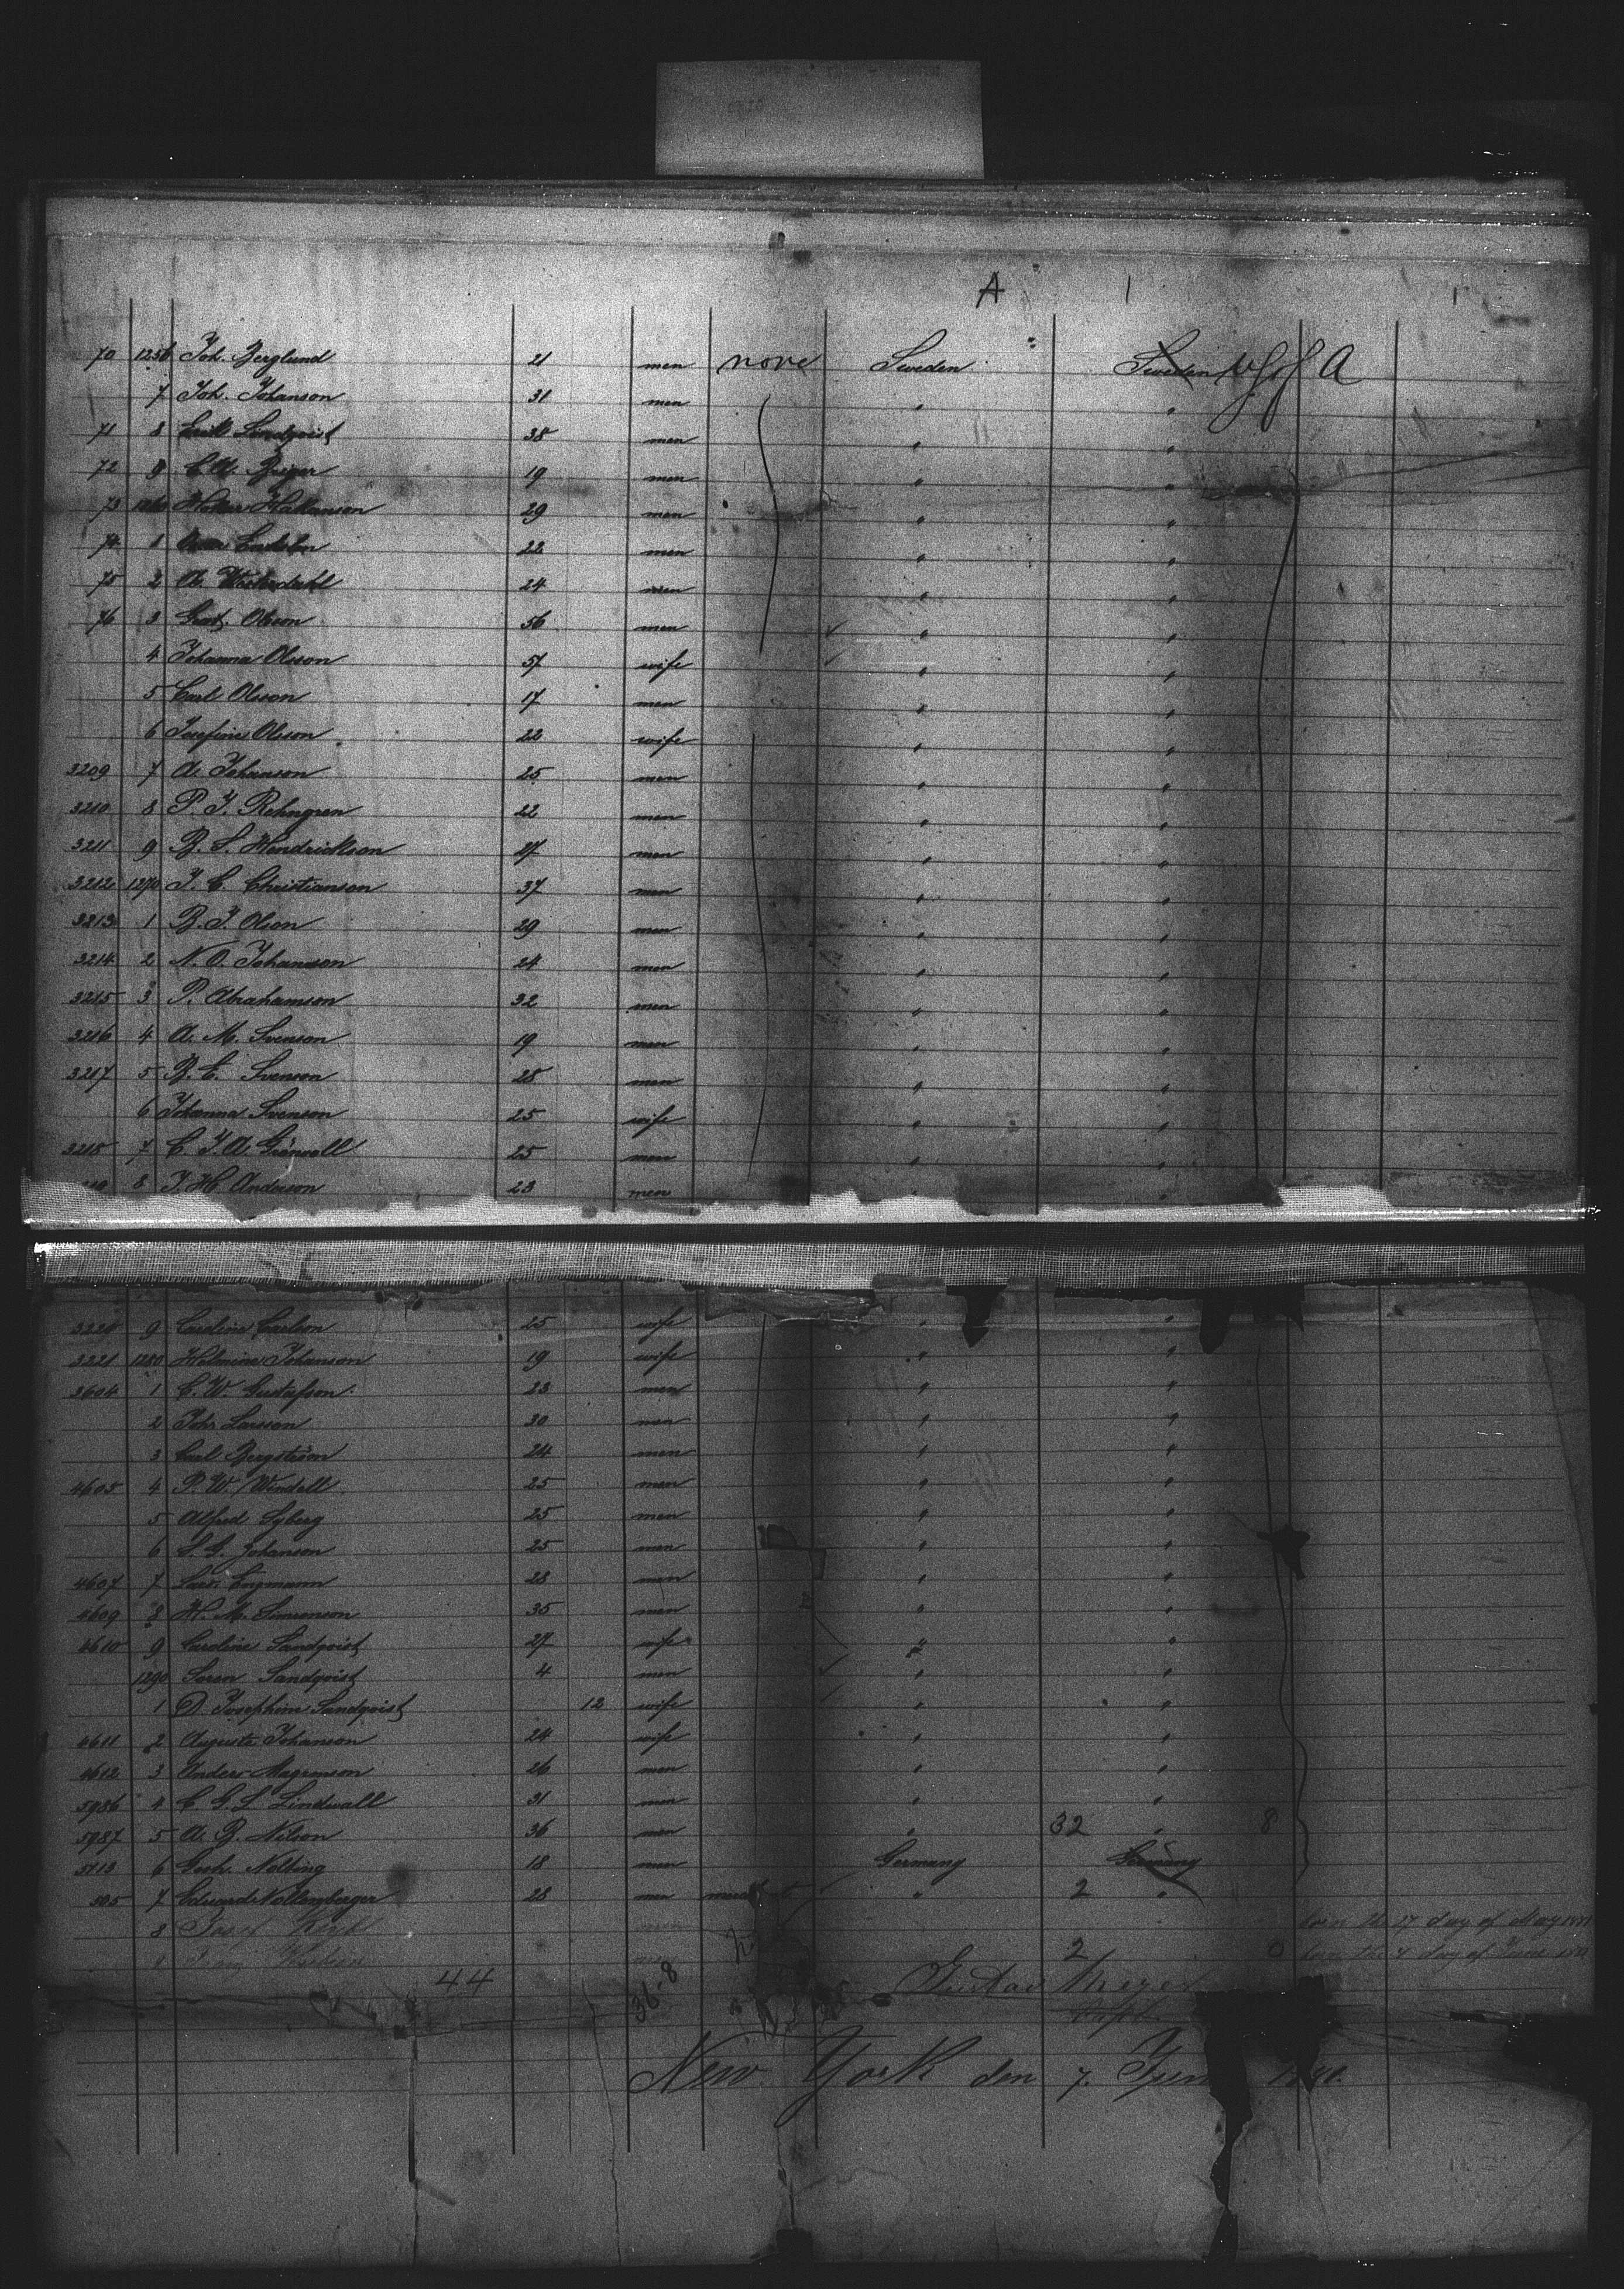 A 1 1
70 1256 Joh. Berglund 21 men none Sweden Sweden U S of A
7 Joh. Johanson 31 men " "
71 8 Erik Lindqvist 38 men " "
72 9 19 men " "
73 1260 Håkanson 29 men " "
74 1 22 men " "
75 2 A. Westerdahl 24 men " "
76 3 Gust. Olsson 56 men " "
4 Johanna Olsson 57 wife " "
5 Carl Olsson 17 men " "
6 Josefine Olsson 22 wife " "
3209 7 A. Johanson 25 men " "
3210 8 P. J. Rehngren 22 men " "
3211 9 B. S. Hendrickson 27 men " "
3212 1270 J. C. Christianson 37 men " "
3213 1 B. J. Olson 29 men " "
3214 2 N. O. Johanson 24 men " "
3215 3 P. Abrahamson 32 men " "
3216 4 A. M. Svenson 19 men " "
3217 5 B. E. Svenson 28 men " "
6 Johanna Svenson 25 wife " "
3218 7 C. J. A. Grönvall 25 men " "
8 J. H. Anderson 23 men
3220 9 Caroline Carlson 25 wife " "
3221 1280 Helmina Johanson 19 wife " "
3604 1 C. W. Gustafson 23 men " "
2 Joh. Larsson 30 men " "
3 Carl Bergström 24 men " "
4605 4 P. W. Wendell 25 men " "
5 Alfred Syberg 25 men " "
6 S. G. Johanson 25 men " "
4607 7 Engmann 28 men " "
4609 8 H. M. Simonson 35 men " "
4610 9 Caroline Sandqvist 27 wife " "
1290 Soren Sandqvist 4 men " "
1 D. Josephine Sandqvist 12 wife " "
4611 2 Auguste Johanson 24 wife " "
4612 3 Anders Magnusson 26 men " "
5986 4 C. G. L. Lindwall 31 men " "
5987 5 A. B. Nilson 36 men " 32 " 8
5113 6 Nolting 18 men Germany Germany
505 7 Eduard Nollenberger 28 men " 2 "
8 Josef men born the 17 day of May
9 men 2 0 born the 4 day of June
44 36-8 Gustav Meyer
Capt.
New York den 7. Juni